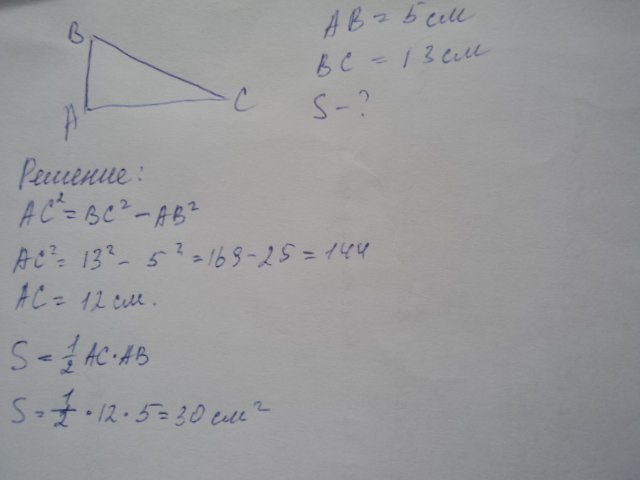 B
A
C
AB = 5 см
BC = 13 см
S - ?
Решение:
AC² = BC² - AB²
AC² = 13² - 5² = 169 - 25 = 144
AC = 12 см.
S = 1/2 AC · AB
S = 1/2 · 12 · 5 = 30 см²